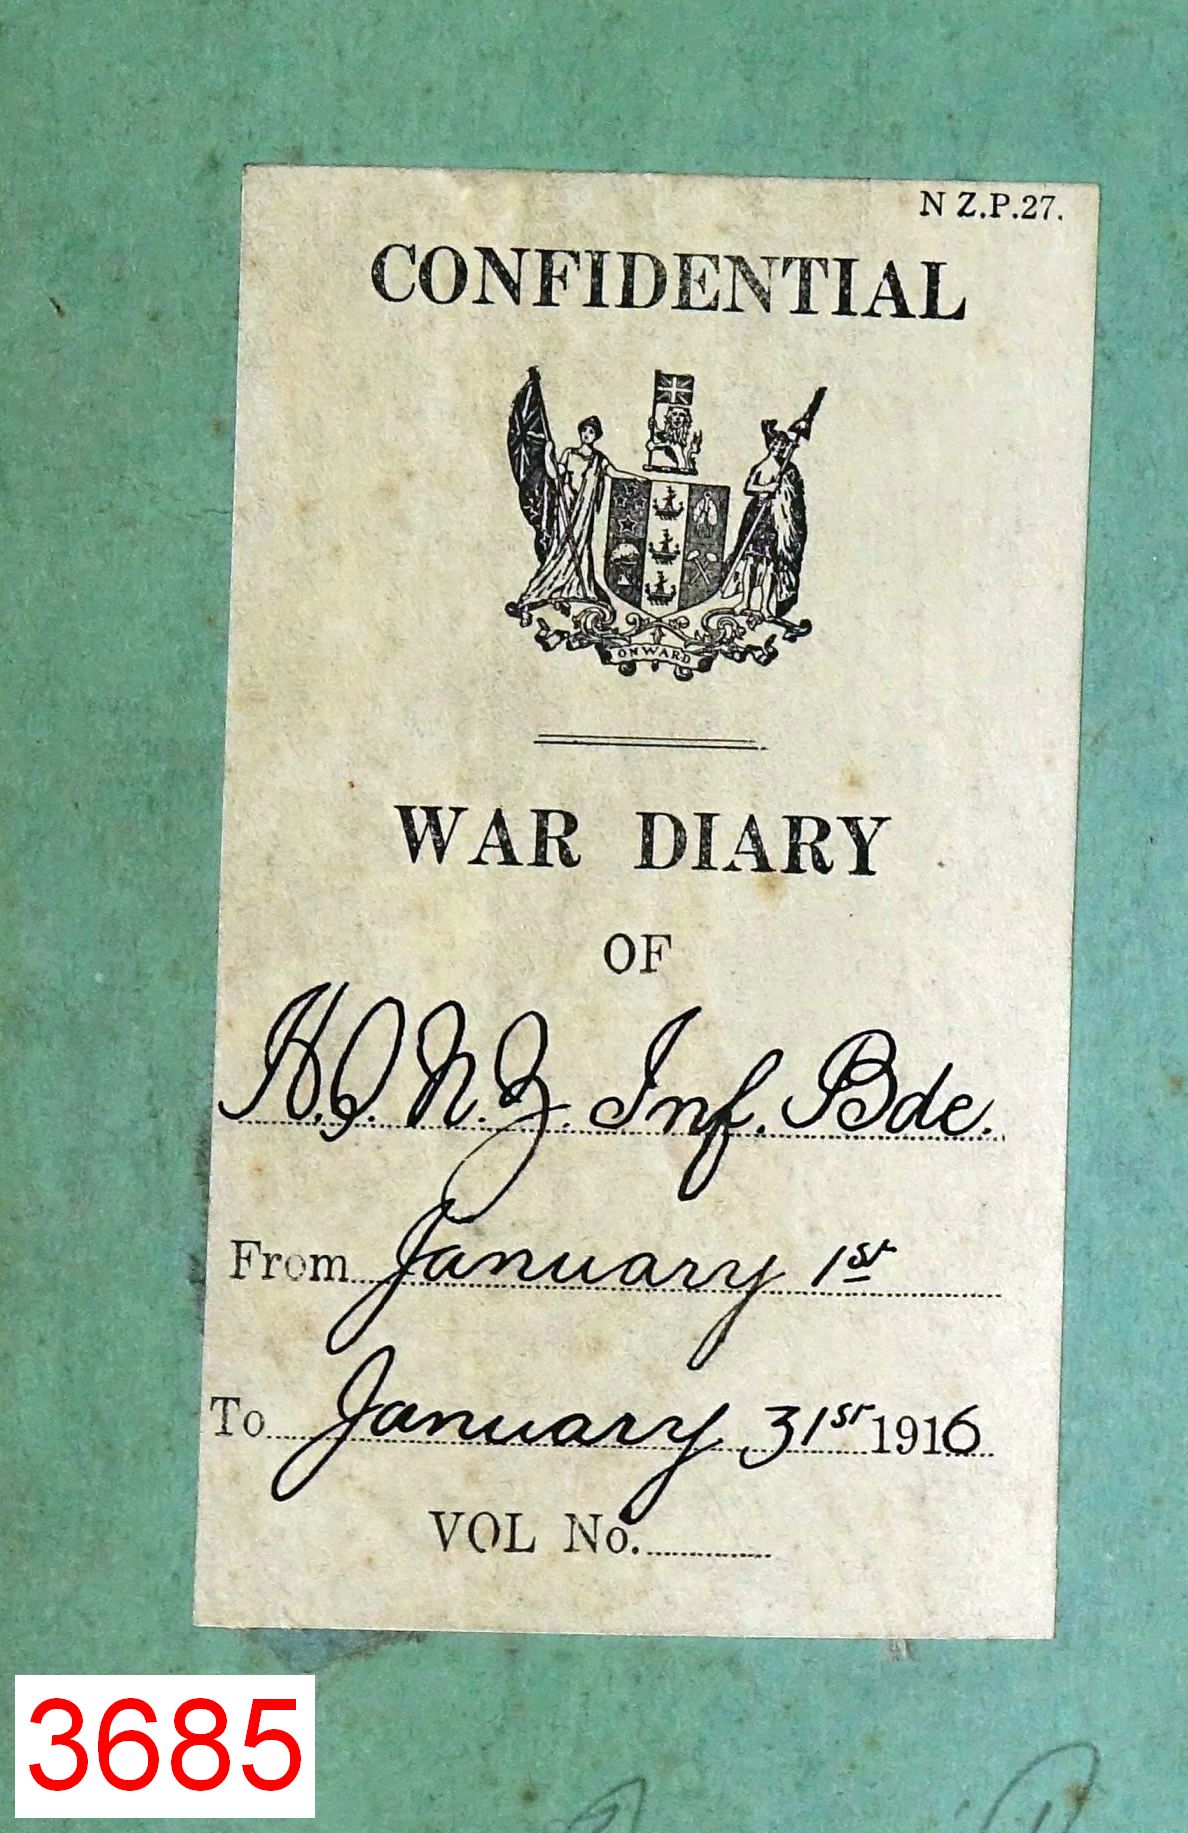 N Z.P.27.
CONFIDENTIAL
ONWARD
WAR DIARY
OF
H.Q. N.Z. Inf. Bde.
From January 1st
To January 31st 1916
VOL No.
3685